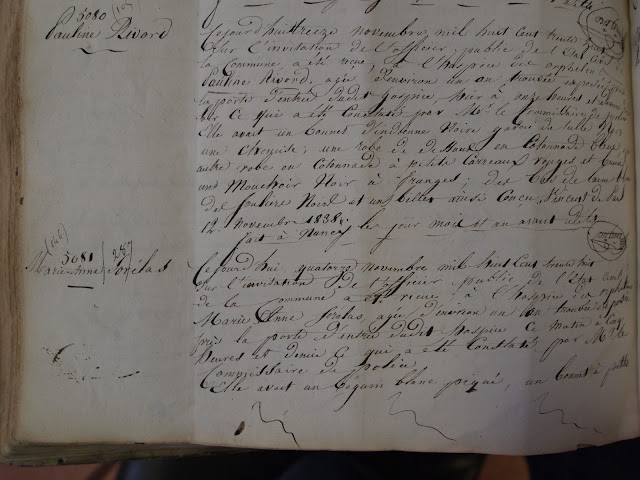 5080
Pauline Rivord
Cejourd'hui treize novembre mil huit cent trente huit
sur l'invitation de l'officier public de l'Etat Civil
la Commune, a été reçue, à l'hospice des orphelins
Pauline Rivord, agée d'environ un an, trouvée exposée
la porte d'entrée dudit hospice, hier à onze heures et demie
sur ce qui a été Constaté par Mr. le Commissaire de police
Elle avait un Bonnet d'indienne Noire garni de tulle
une Chemise, une robe de dessous en Colonnade bleue
autre robe en Colonnade à petits Carreaux rouges et
un Mouchoir Noir à franges, des bas de laine
des souliers Noirs et un billet ainsi Conçu,
12 Novembre 1838.
fait à Nancy les jour mois et an avant dits
5081
287
Marie Anne Sorélas
Cejourd'hui quatorze novembre mil huit cent trente huit
sur l'invitation de l'officier public de l'Etat civil
de la Commune a été reçue à l'hospice des orphelins
Marie Anne agée d'environ un an trouvée exposée
près la porte d'entrée dudit hospice ce matin à cinq
heures et demie ce qui a été Constaté par Mr. le
Commissaire de police
Elle avait un béguin blanc piqué, un bonnet à